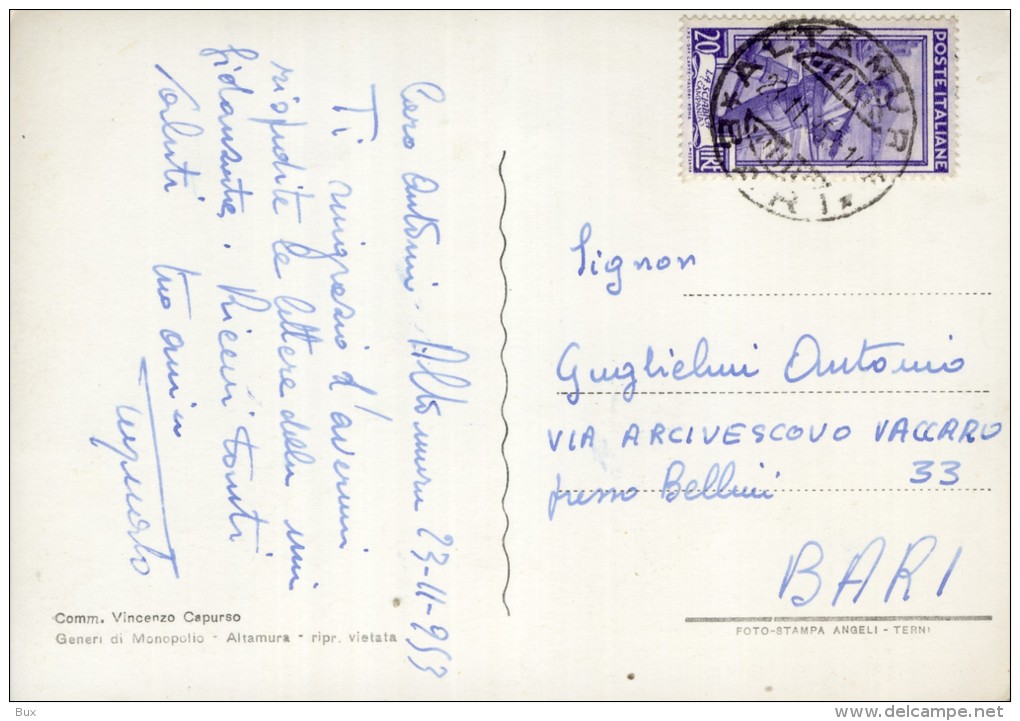 Caro Antonio. Altamura 23-11-953
Ti ringrazio d'avermi
rispedite le lettere della mia
fidanzata. Ricevi tanti
saluti tuo amico
POSTE ITALIANE
20
LIRE
ALTAMURA
BARI
Signor
Guglielmi Antonio
VIA ARCIVESCOVO VACCARO
33
presso Bellini
BARI
Comm. Vincenzo Capurso
Generi di Monopolio - Altamura - ripr. vietata
FOTO-STAMPA ANGELI - TERNI
Bux
delcampe.net